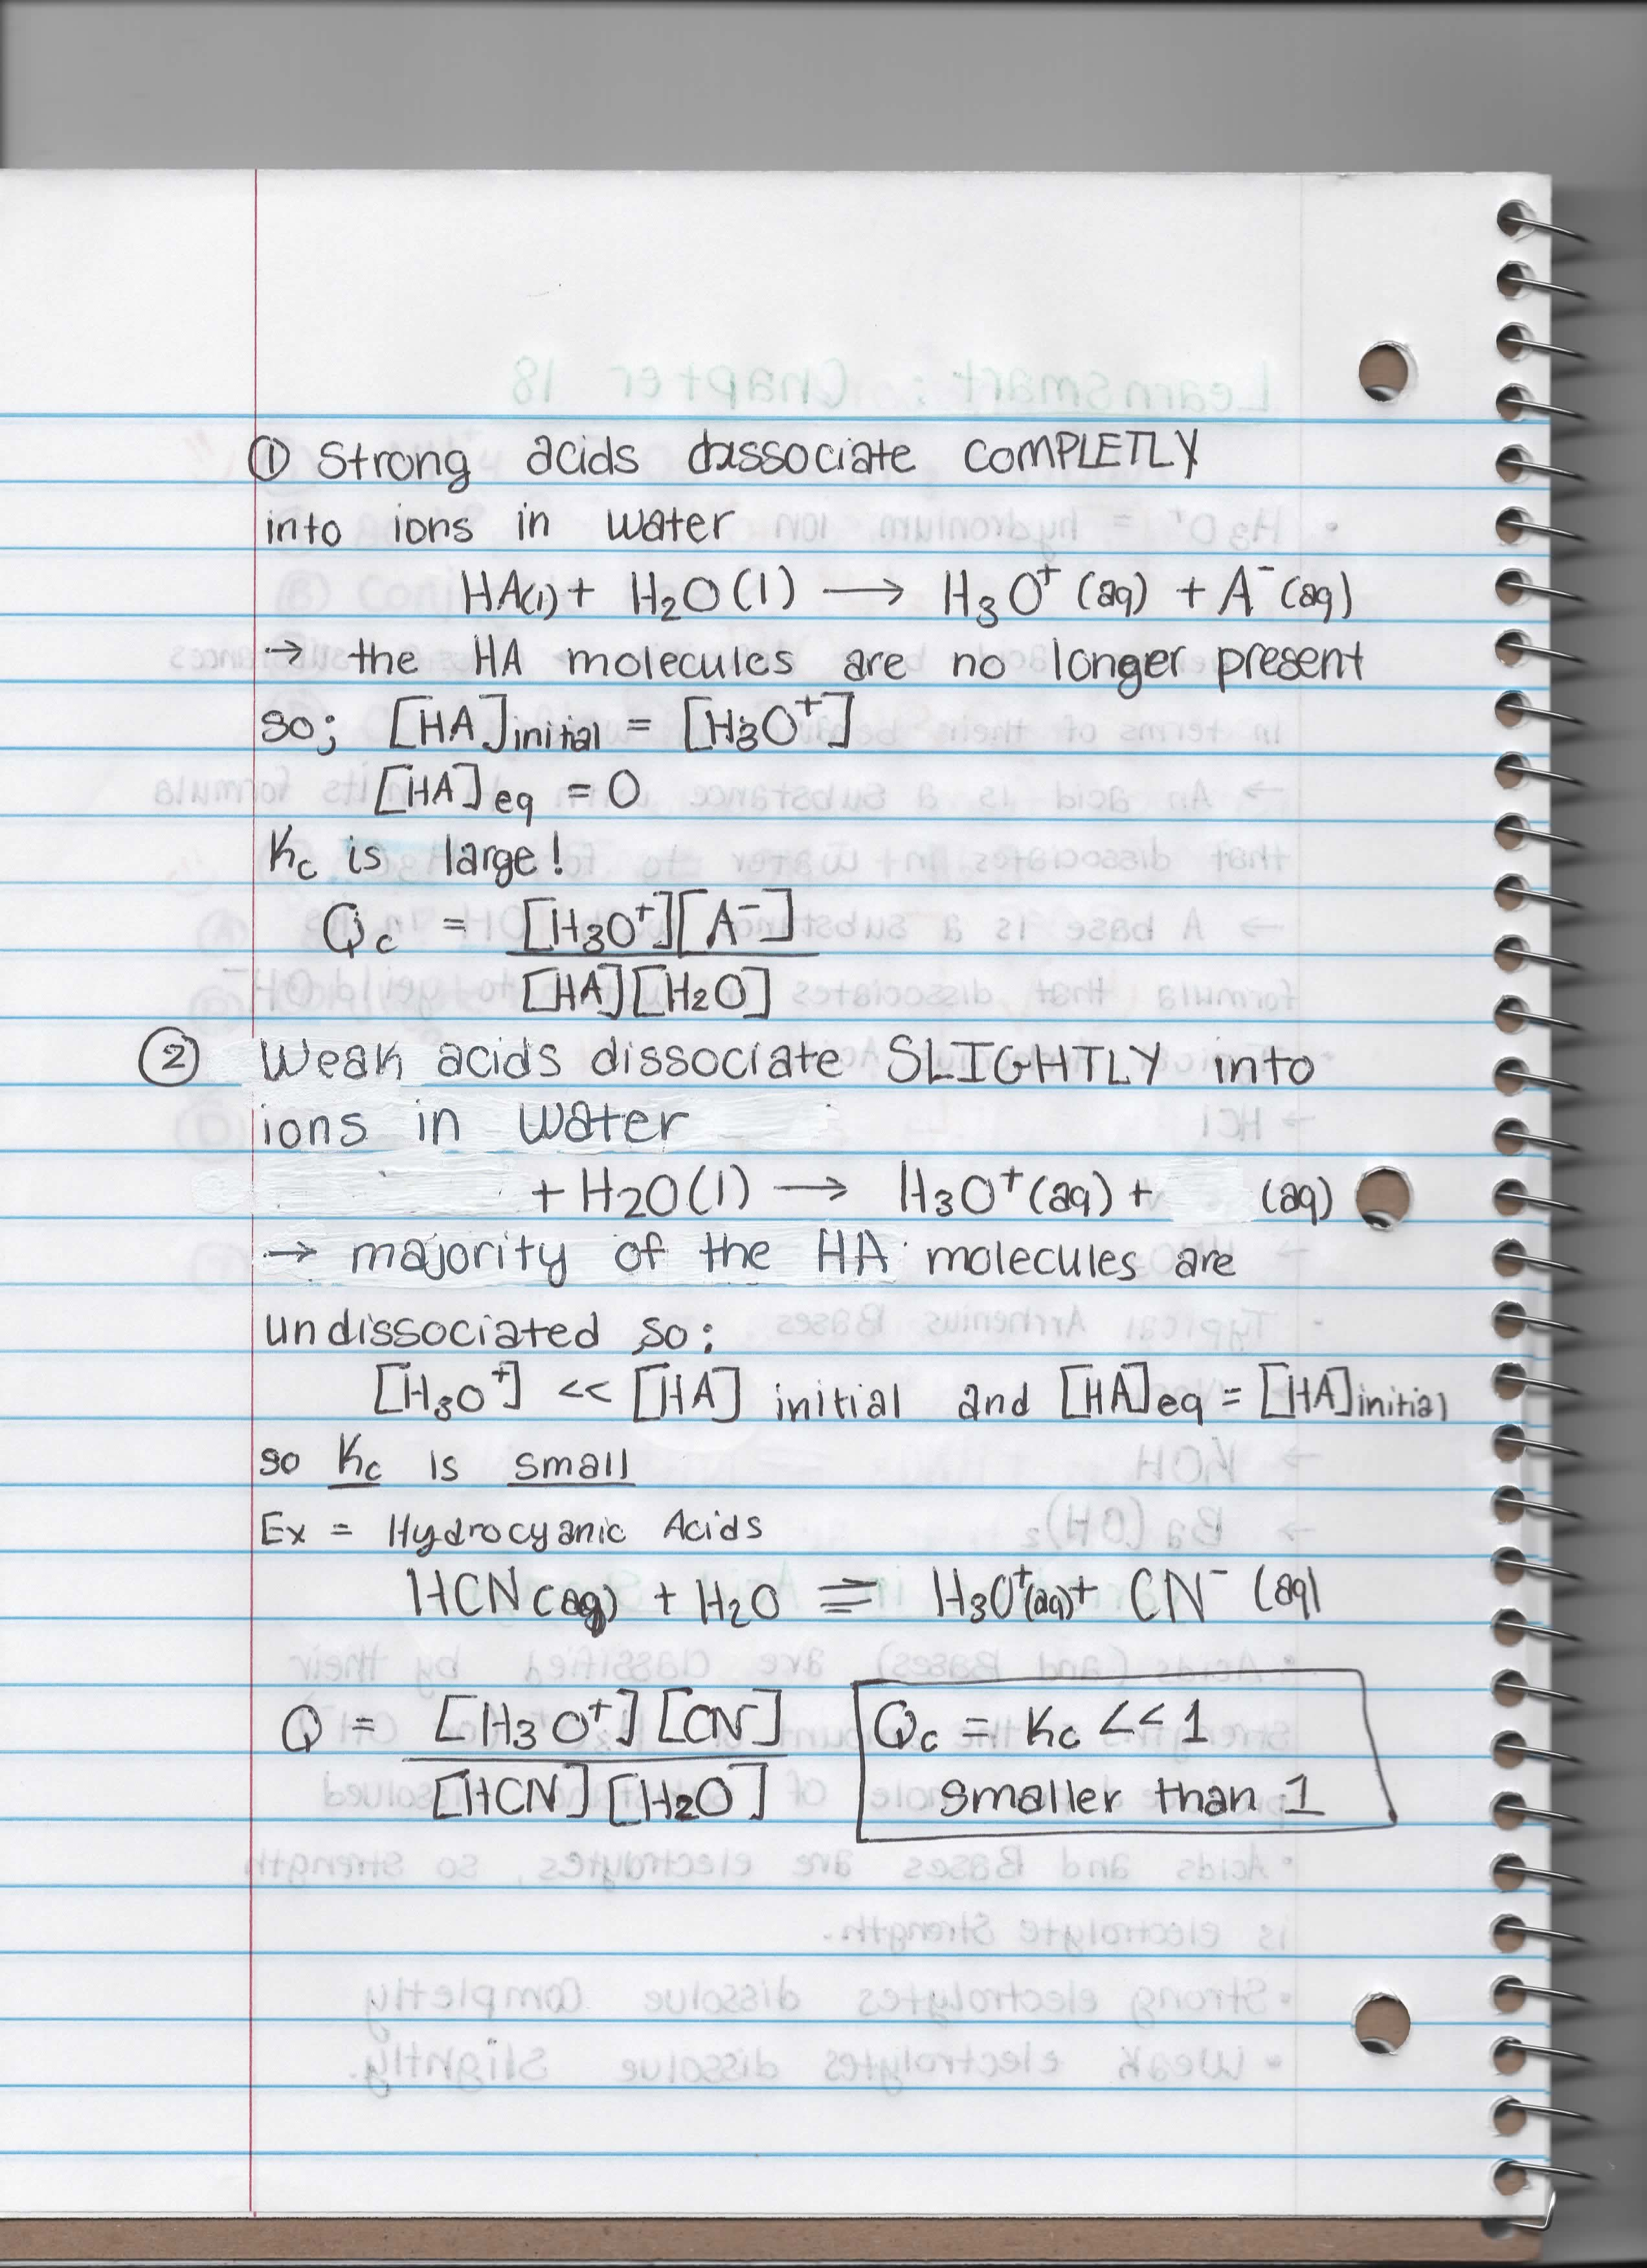 ① Strong acids dissociate COMPLETLY
into ions in water
HA(l) + H₂O(l) → H₃O⁺(aq) + A⁻(aq)
→ the HA molecules are no longer present
so; [HA]initial = [H₃O⁺]
[HA]eq = 0
Kc is large!
Qc = [H₃O⁺][A⁻]
[HA][H₂O]
② Weak acids dissociate SLIGHTLY into
ions in water
+ H₂O(l) → H₃O⁺(aq) + (aq)
→ majority of the HA molecules are
undissociated so;
[H₃O⁺] << [HA] initial and [HA]eq = [HA]initial
so Kc is small
Ex = Hydrocyanic Acids
HCN(aq) + H₂O ⇌ H₃O⁺(aq) + CN⁻ (aq)
Q = [H₃O⁺][CN⁻]
[HCN][H₂O]
Qc = Kc << 1
smaller than 1